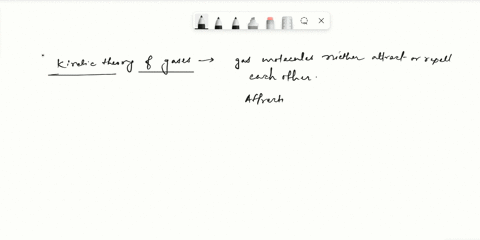 Kinetic theory of gases → gas molecules niether attract or repell
each other.
Attracti